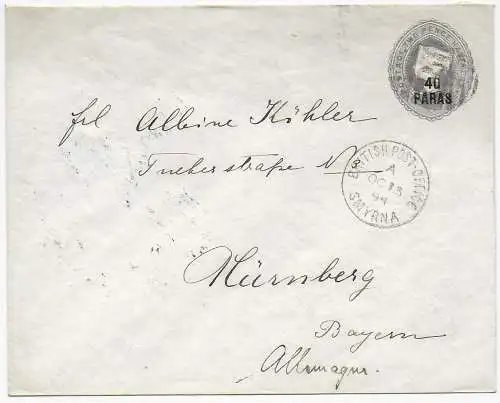 40
PARAS
frl Albine Köhler
BRITISH POST OFFICE
A
OC 13
94
SMYRNA
Nürnberg
Bayern
Allemagne.